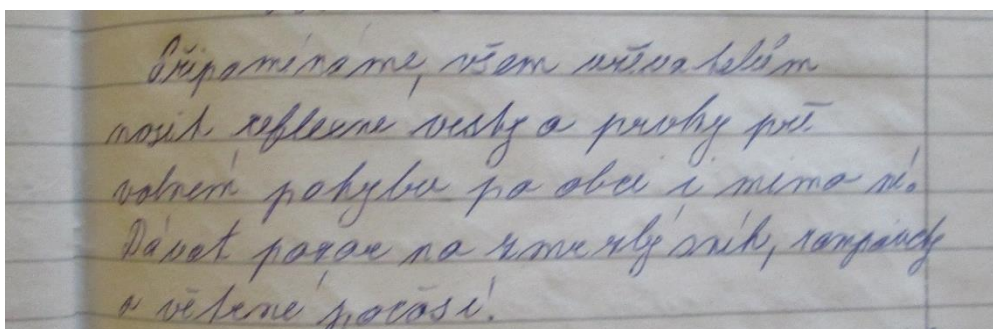 Připomínáme, všem uživatelům
nosit reflexné vesty a prvky při
volném pohybu po obci i mimo ní.
Dávat pozor na zmrzlý sníh, rampouchy
a větrné počasí!